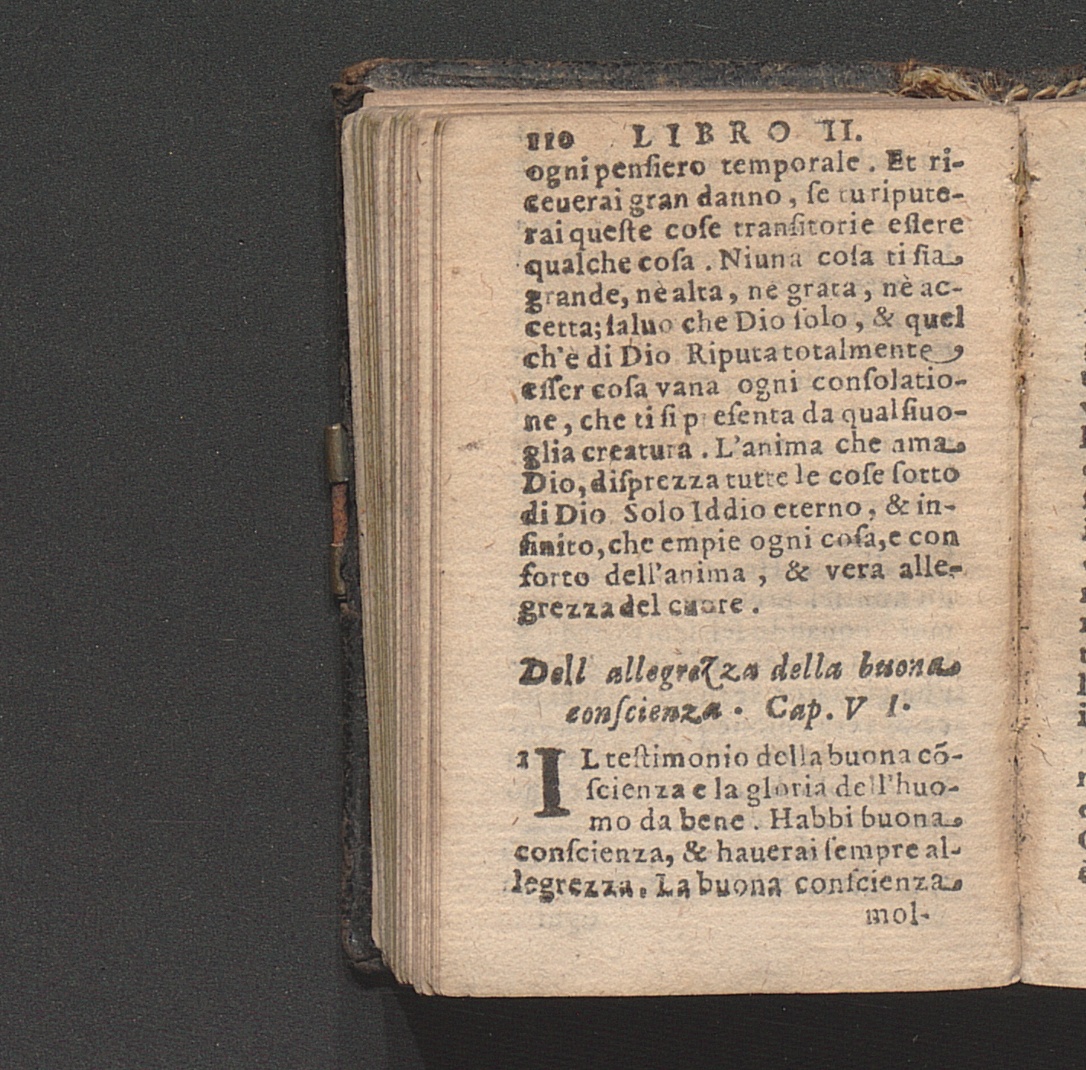 110 LIBRO II.
ogni penſiero temporale. Et ri-
ceuerai gran danno, ſe tu ripute-
rai queſte coſe tranſitorie eſſere
qualche coſa. Niuna coſa ti ſia
grande, nè alta, nè grata, nè ac-
cetta; ſaluo che Dio ſolo, & quel
ch'è di Dio Riputa totalmente
eſſer coſa vana ogni conſolatio-
ne, che ti ſi preſenta da qualſiuo-
glia creatura. L'anima che ama
Dio, diſprezza tutte le coſe ſotto
di Dio Solo Iddio eterno, & in-
finito, che empie ogni coſa, e con
forto dell'anima, & vera alle-
grezza del cuore.
Dell allegrezza della buona
conſcienza. Cap. V I.
1 IL teſtimonio della buona cõ-
ſcienza e la gloria dell'huo-
mo da bene. Habbi buona
conſcienza, & hauerai ſempre al-
legrezza. La buona conſcienza
mol-